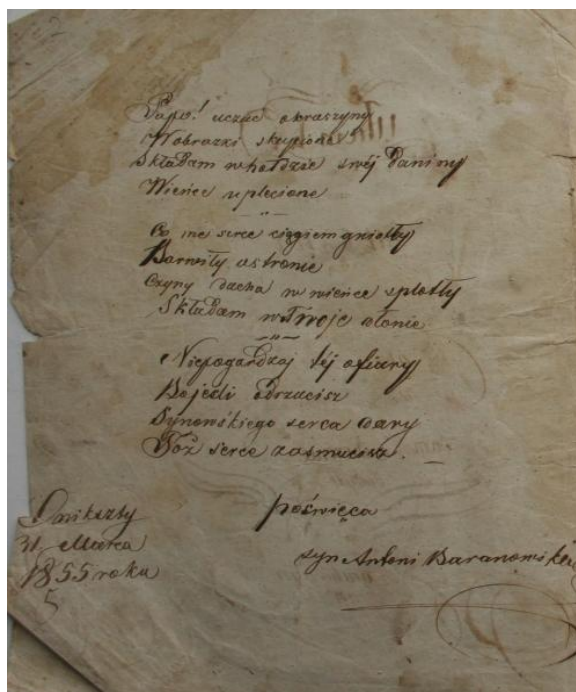 Papo! uczuć okruszyny
W obrazki skupione
Składam w hołdzie swéj daniny
Wieńce uplecione
Co me serce ciągiem gniotły
Barwiły ustronie
Czyny ducha w wieńce splotły
Składam w Twoje dłonie
Niepogardzaj téj ofiary
Bo jeśli odrzucisz
Synowskiego serca dary
Toż serce zasmucisz.
poświęca
Onikszty
31 Marca
1855 roku
5
syn Antoni Baranowski